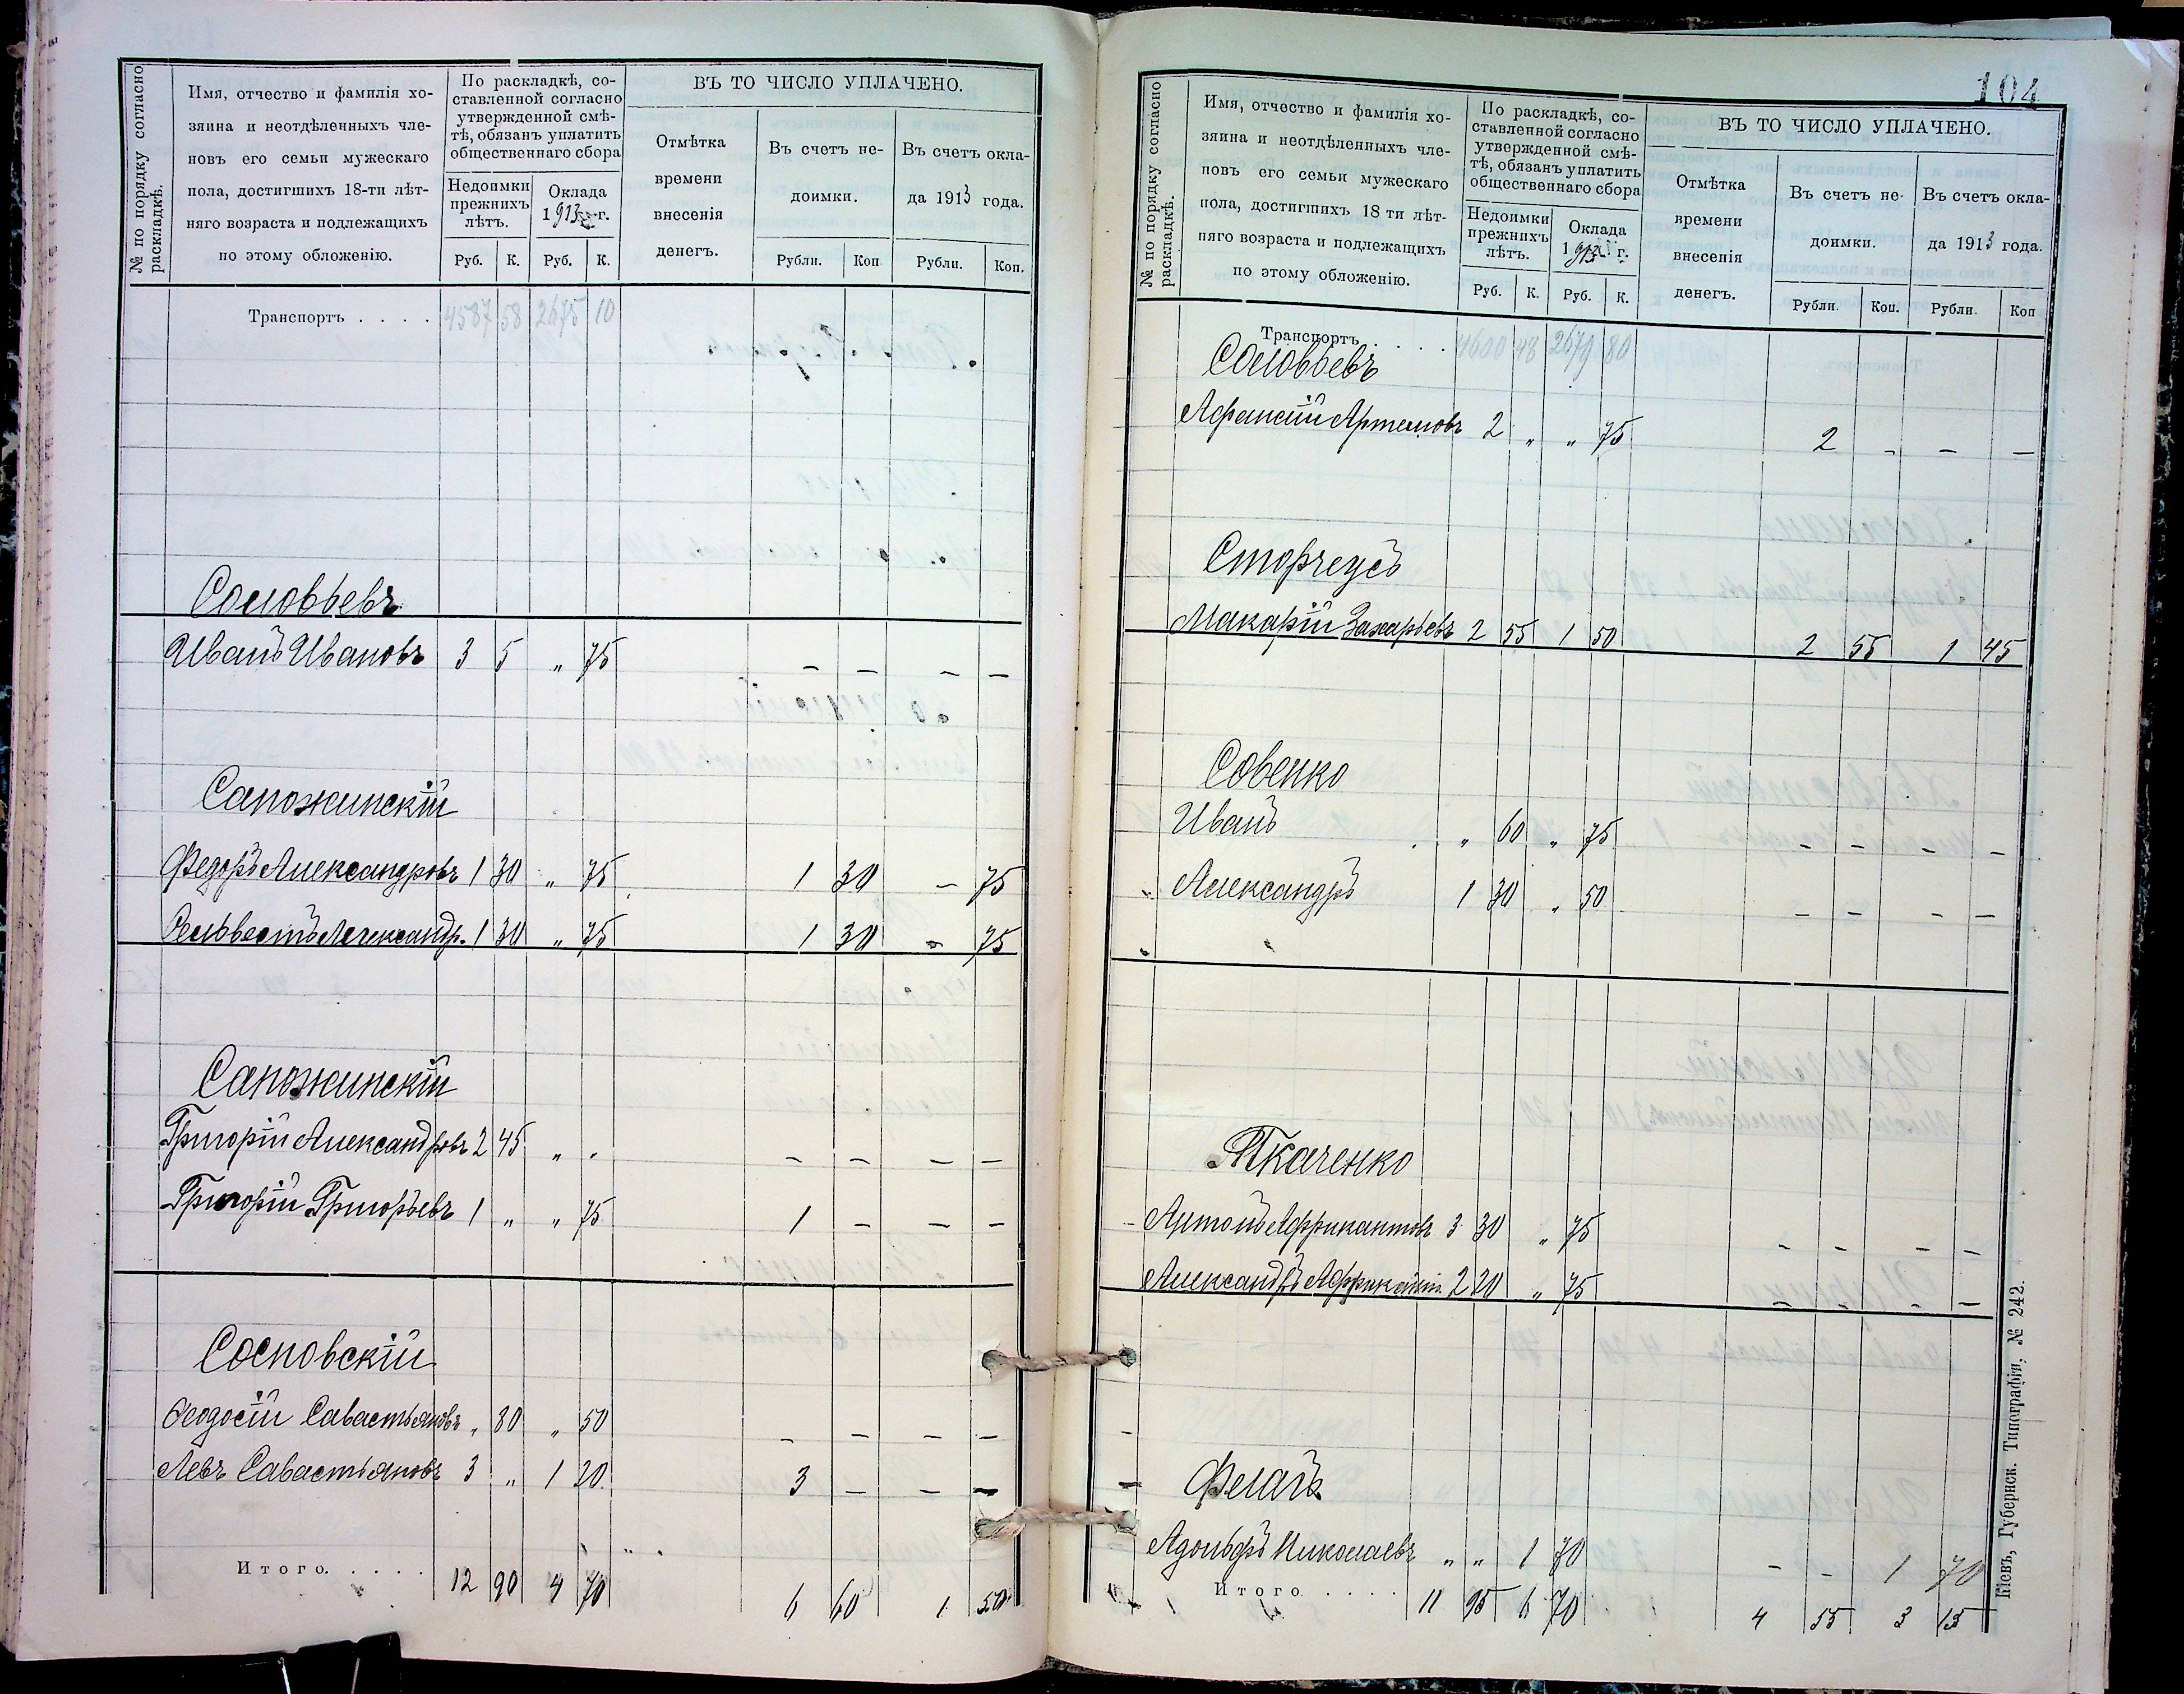 № по порядку согласно раскладкѣ.
Имя, отчество и фамилія хо-
зяина и неотдѣленныхъ чле-
новъ его семьи мужескаго
пола, достигшихъ 18-ти лѣт-
няго возраста и подлежащихъ
по этому обложенію.
По раскладкѣ, со-
ставленной согласно
утвержденной смѣ-
тѣ, обязанъ уплатить
общественнаго сбора
Недоимки прежнихъ лѣтъ.
Оклада 1913 г.
Руб. К. Руб. К.
ВЪ ТО ЧИСЛО УПЛАЧЕНО.
Отмѣтка времени внесенія денегъ.
Въ счетъ не-доимки.
Въ счетъ окла-да 1913 года.
Рубли. Коп Рубли. Коп.
Транспортъ . . . . 4587 58 2675 10
Соловьевъ
Иванъ Ивановъ 3 5 „ 75 – – – –
Сапожинскій
Федоръ Александровъ 1 30 „ 75 1 30 – 75
Сельвестъ Александр. 1 30 „ 75 1 30 – 75
Сапожинскій
Григорій Александровъ 2 45 „ „ – – – –
Григорій Григорьевъ 1 „ „ 75 1 – – –
Сосновскій
Феодосій Савастьяновъ „ 80 „ 50 – – – –
Левъ Савастьяновъ 3 „ 1 20 3 – – –
Итого. . . . . 12 90 4 70 6 60 1 50
104
№ по порядку согласно раскладкѣ.
Имя, отчество и фамилія хо-
зяина и неотдѣленныхъ чле-
новъ его семьи мужескаго
пола, достигшихъ 18 ти лѣт-
няго возраста и подлежащихъ
по этому обложенію.
По раскладкѣ, со-
ставленной согласно
утвержденной смѣ-
тѣ, обязанъ уплатить
общественнаго сбора
Недоимки прежнихъ лѣтъ.
Оклада 1913 г.
Руб. К. Руб. К.
ВЪ ТО ЧИСЛО УПЛАЧЕНО.
Отмѣтка времени внесенія денегъ.
Въ счетъ не-доимки.
Въ счетъ окла-да 1913 года.
Рубли. Коп. Рубли. Коп
Транспортъ . . . . 4600 48 2679 80
Соловьевъ
Афанасій Артемовъ 2 „ „ 75 2 – – –
Сторчеусъ
Макарій Захарьевъ 2 55 1 50 2 55 1 45
Совенко
Иванъ „ 60 „ 75 – – – –
Александръ 1 30 „ 50 – – – –
Ткаченко
Антонъ Аффрикантовъ 3 30 „ 75 – – – –
Александръ Аффрикант. 2 20 „ 75 – – – –
Адольфъ Николаевъ „ „ 1 70 – – 1 70
Итого . . . . 11 95 6 70 4 55 3 15
Кіевъ, Губернск. Типографія, № 242.